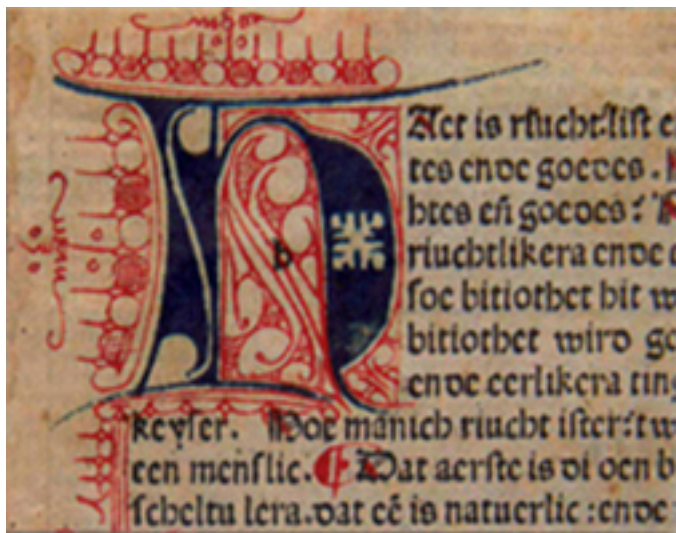 h
Aet is riucht: list e
tes ende goedes.
htes eñ goedes:
riuchtlikera ende
soe bitiothet hit w
bitiothet wird go
ende eerlikera ting
keyser. Hoe manich riucht ister: tw
een menslic. Dat aerste is di oen b
scheltu lera. dat eē is natuerlic: ende